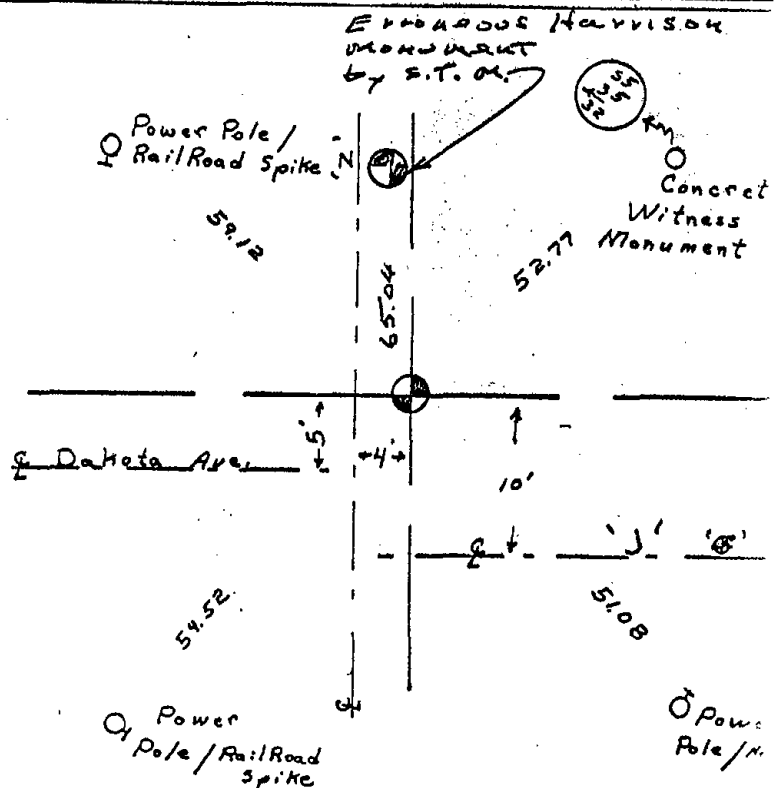 Erroneous Harrison
monument
by S.T. M.
Power Pole /
RailRoad Spike
N
Concret
Witness
Monument
59.12
52.77
65.04
5'
4'
℄ Dakota Ave.
10'
℄ 'J'
54.52
51.08
℄
Power
Pole / RailRoad
Spike
Pow
Pole /